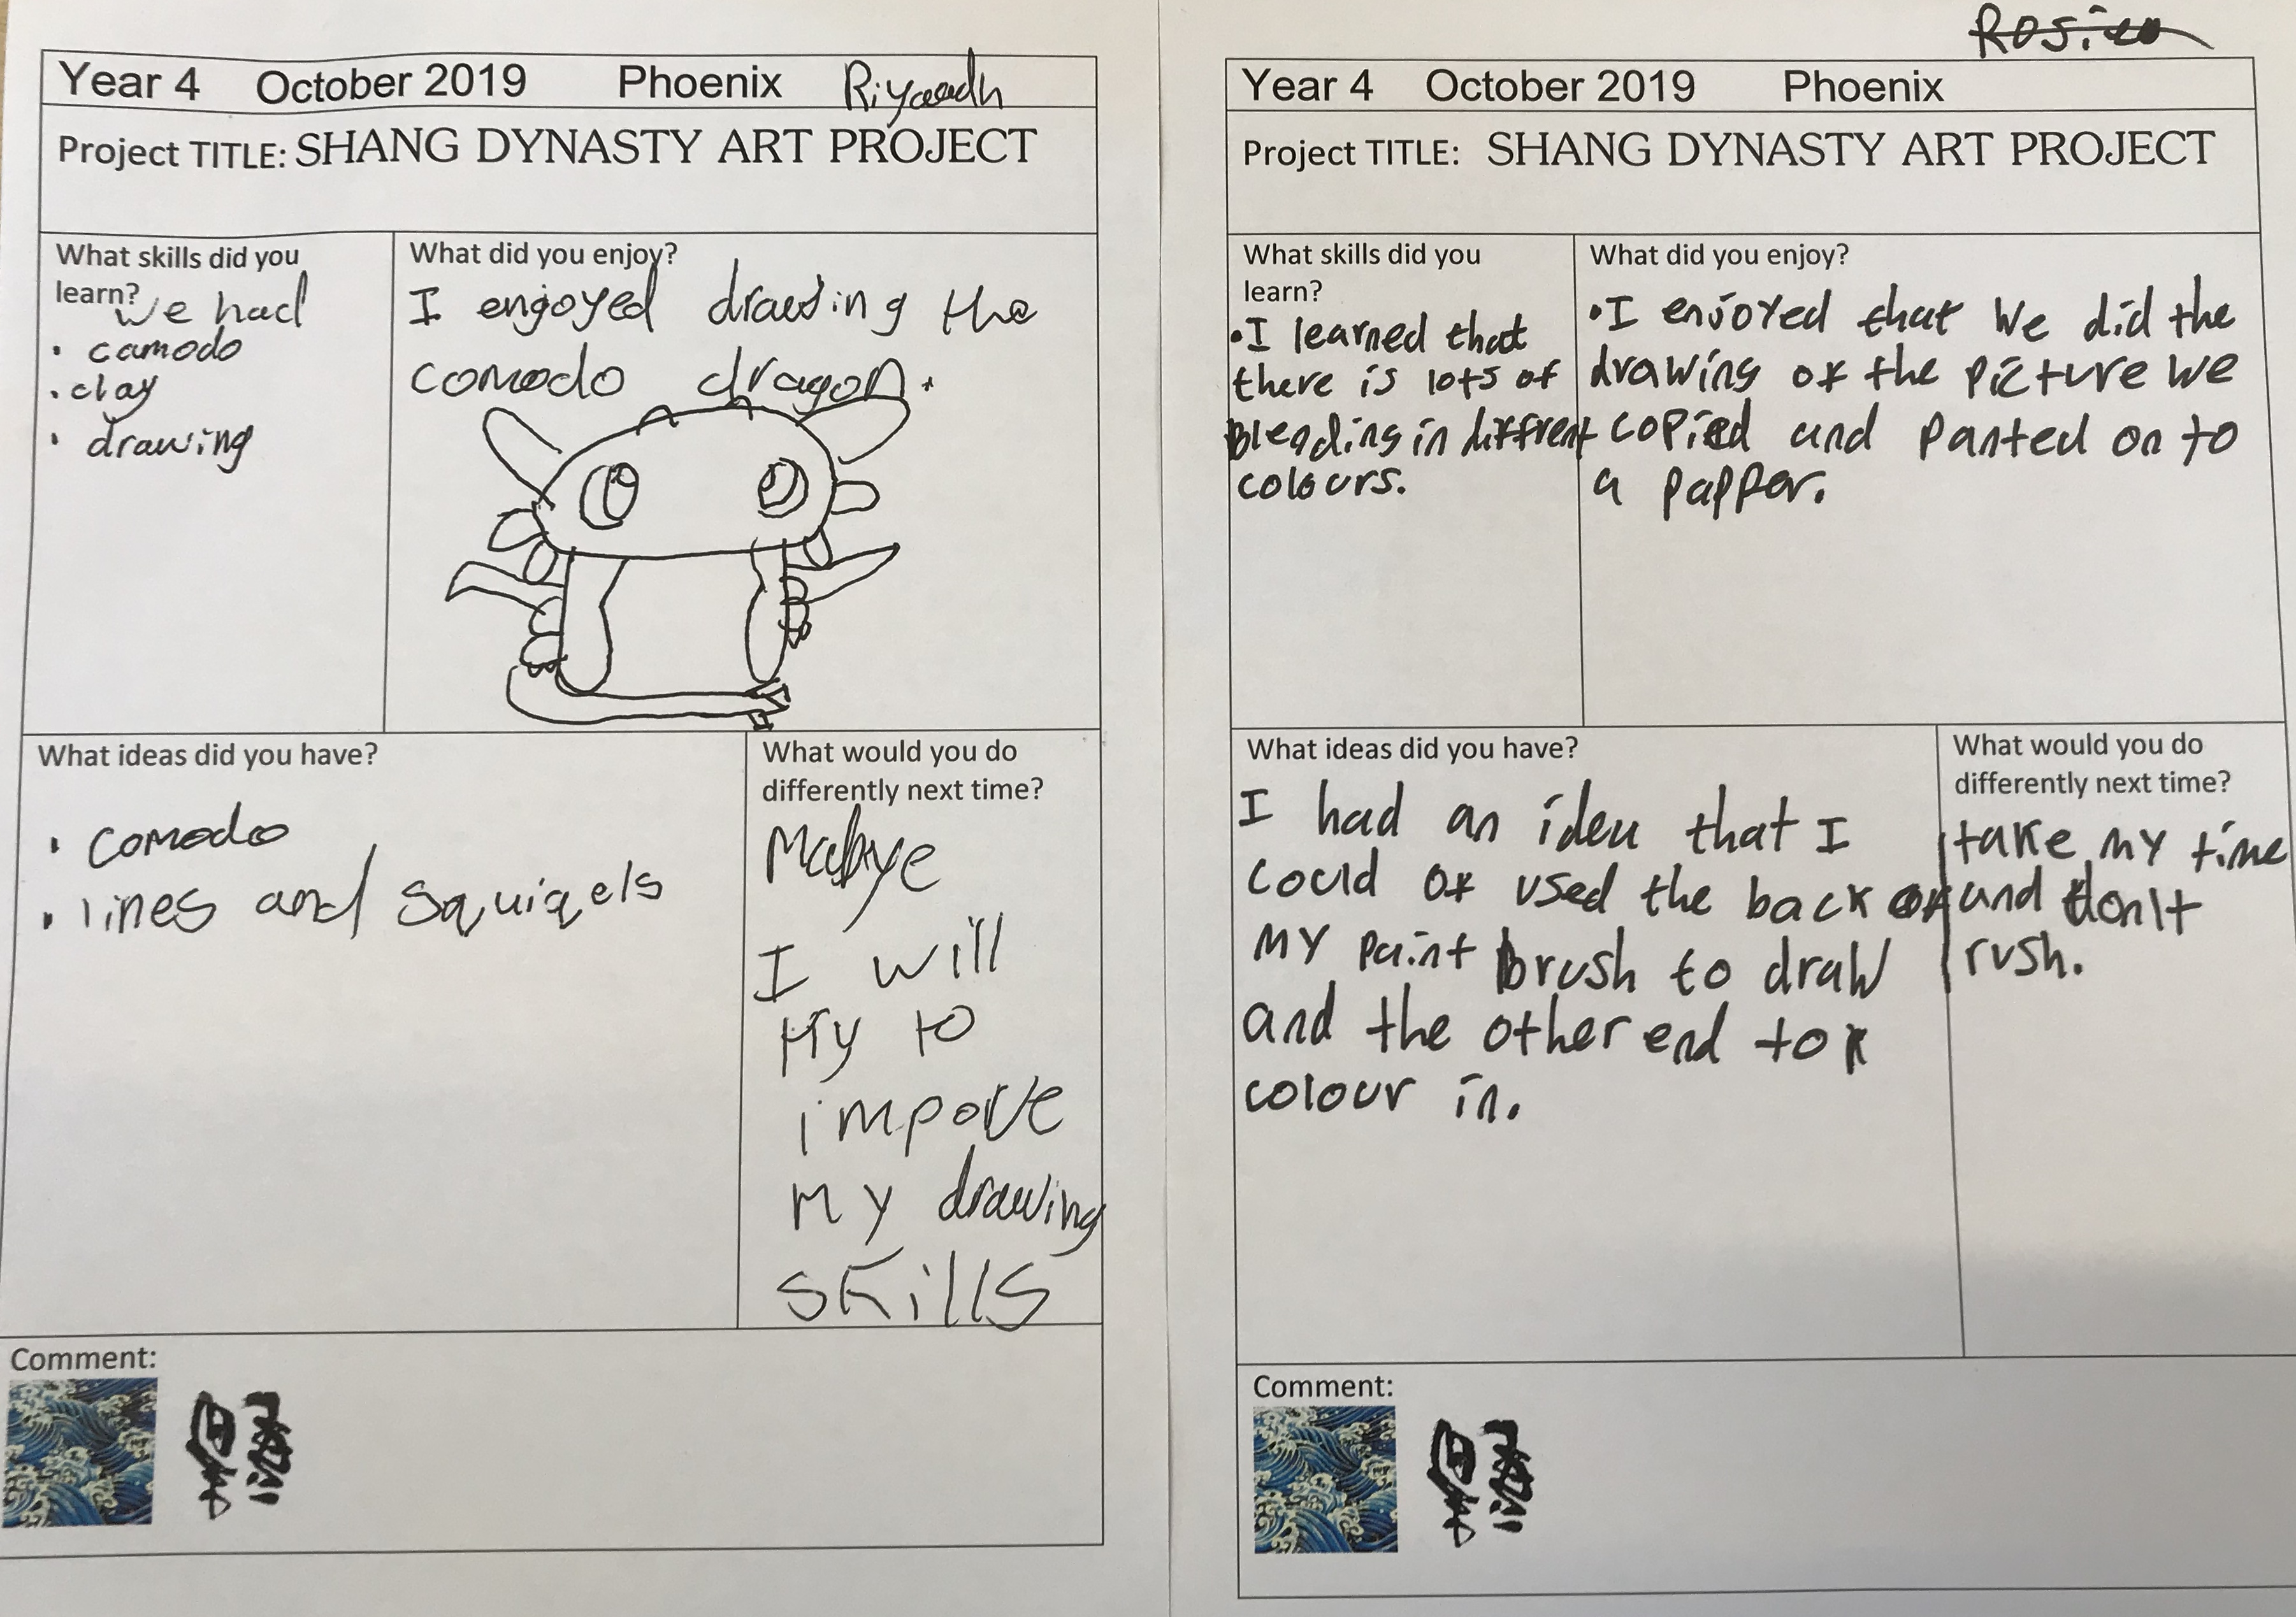 Year 4 October 2019 Phoenix Riyaadh
Project TITLE: SHANG DYNASTY ART PROJECT
What skills did you
learn? We had
• camodo
• clay
• drawing
What did you enjoy?
I engoyed drawing the
comodo dragon.
What ideas did you have?
• comodo
• lines and squiqels
What would you do
differently next time?
Mabye
I will
try to
impove
my drawing
skills
Comment:
Year 4 October 2019 Phoenix
Project TITLE: SHANG DYNASTY ART PROJECT
What skills did you
learn?
•I learned that
there is lots of
Bleading in diffrent
colours.
What did you enjoy?
•I enjoyed that We did the
drawing of the picture we
copied and panted on to
a papper.
What ideas did you have?
I had an idea that I
could of used the back of
my paint brush to draw
and the other end to
colour in.
What would you do
differently next time?
take my time
and don't
rush.
Comment: